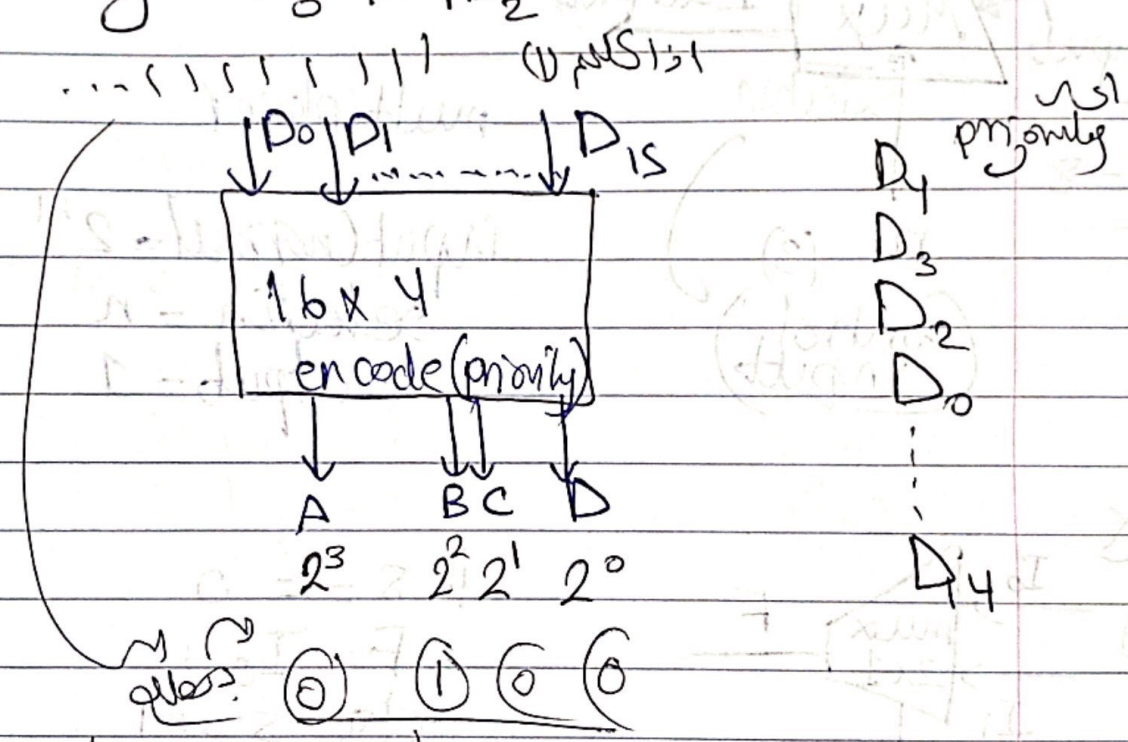 .... 1 1 1 1 1 1 1 1 اذا كلهم (1)
D0 D1 ............ D15
16 x 4
encode (priority)
A B C D
2³ 2² 2¹ 2⁰
0 1 0 0
priority
D4
D3
D2
D0
D14